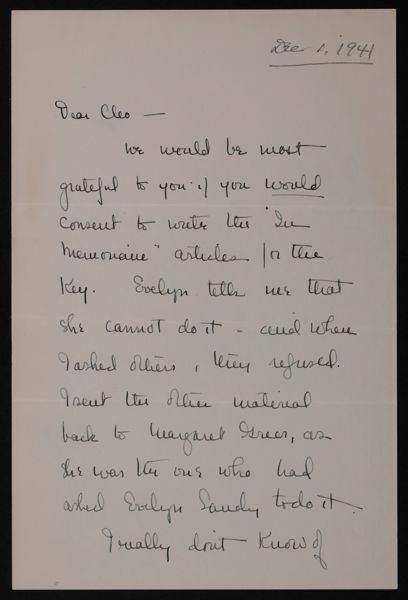 Dec 1, 1941
Dear Cleo —
We would be most
grateful to you if you would
consent to write the "In
Memoriam" articles for the
Key. Evelyn tells me that
she cannot do it - and when
I asked others, they refused.
I sent the other material
back to Margaret Greer, as
she was the one who had
asked Evelyn Gandy to do it.
I really don't know of